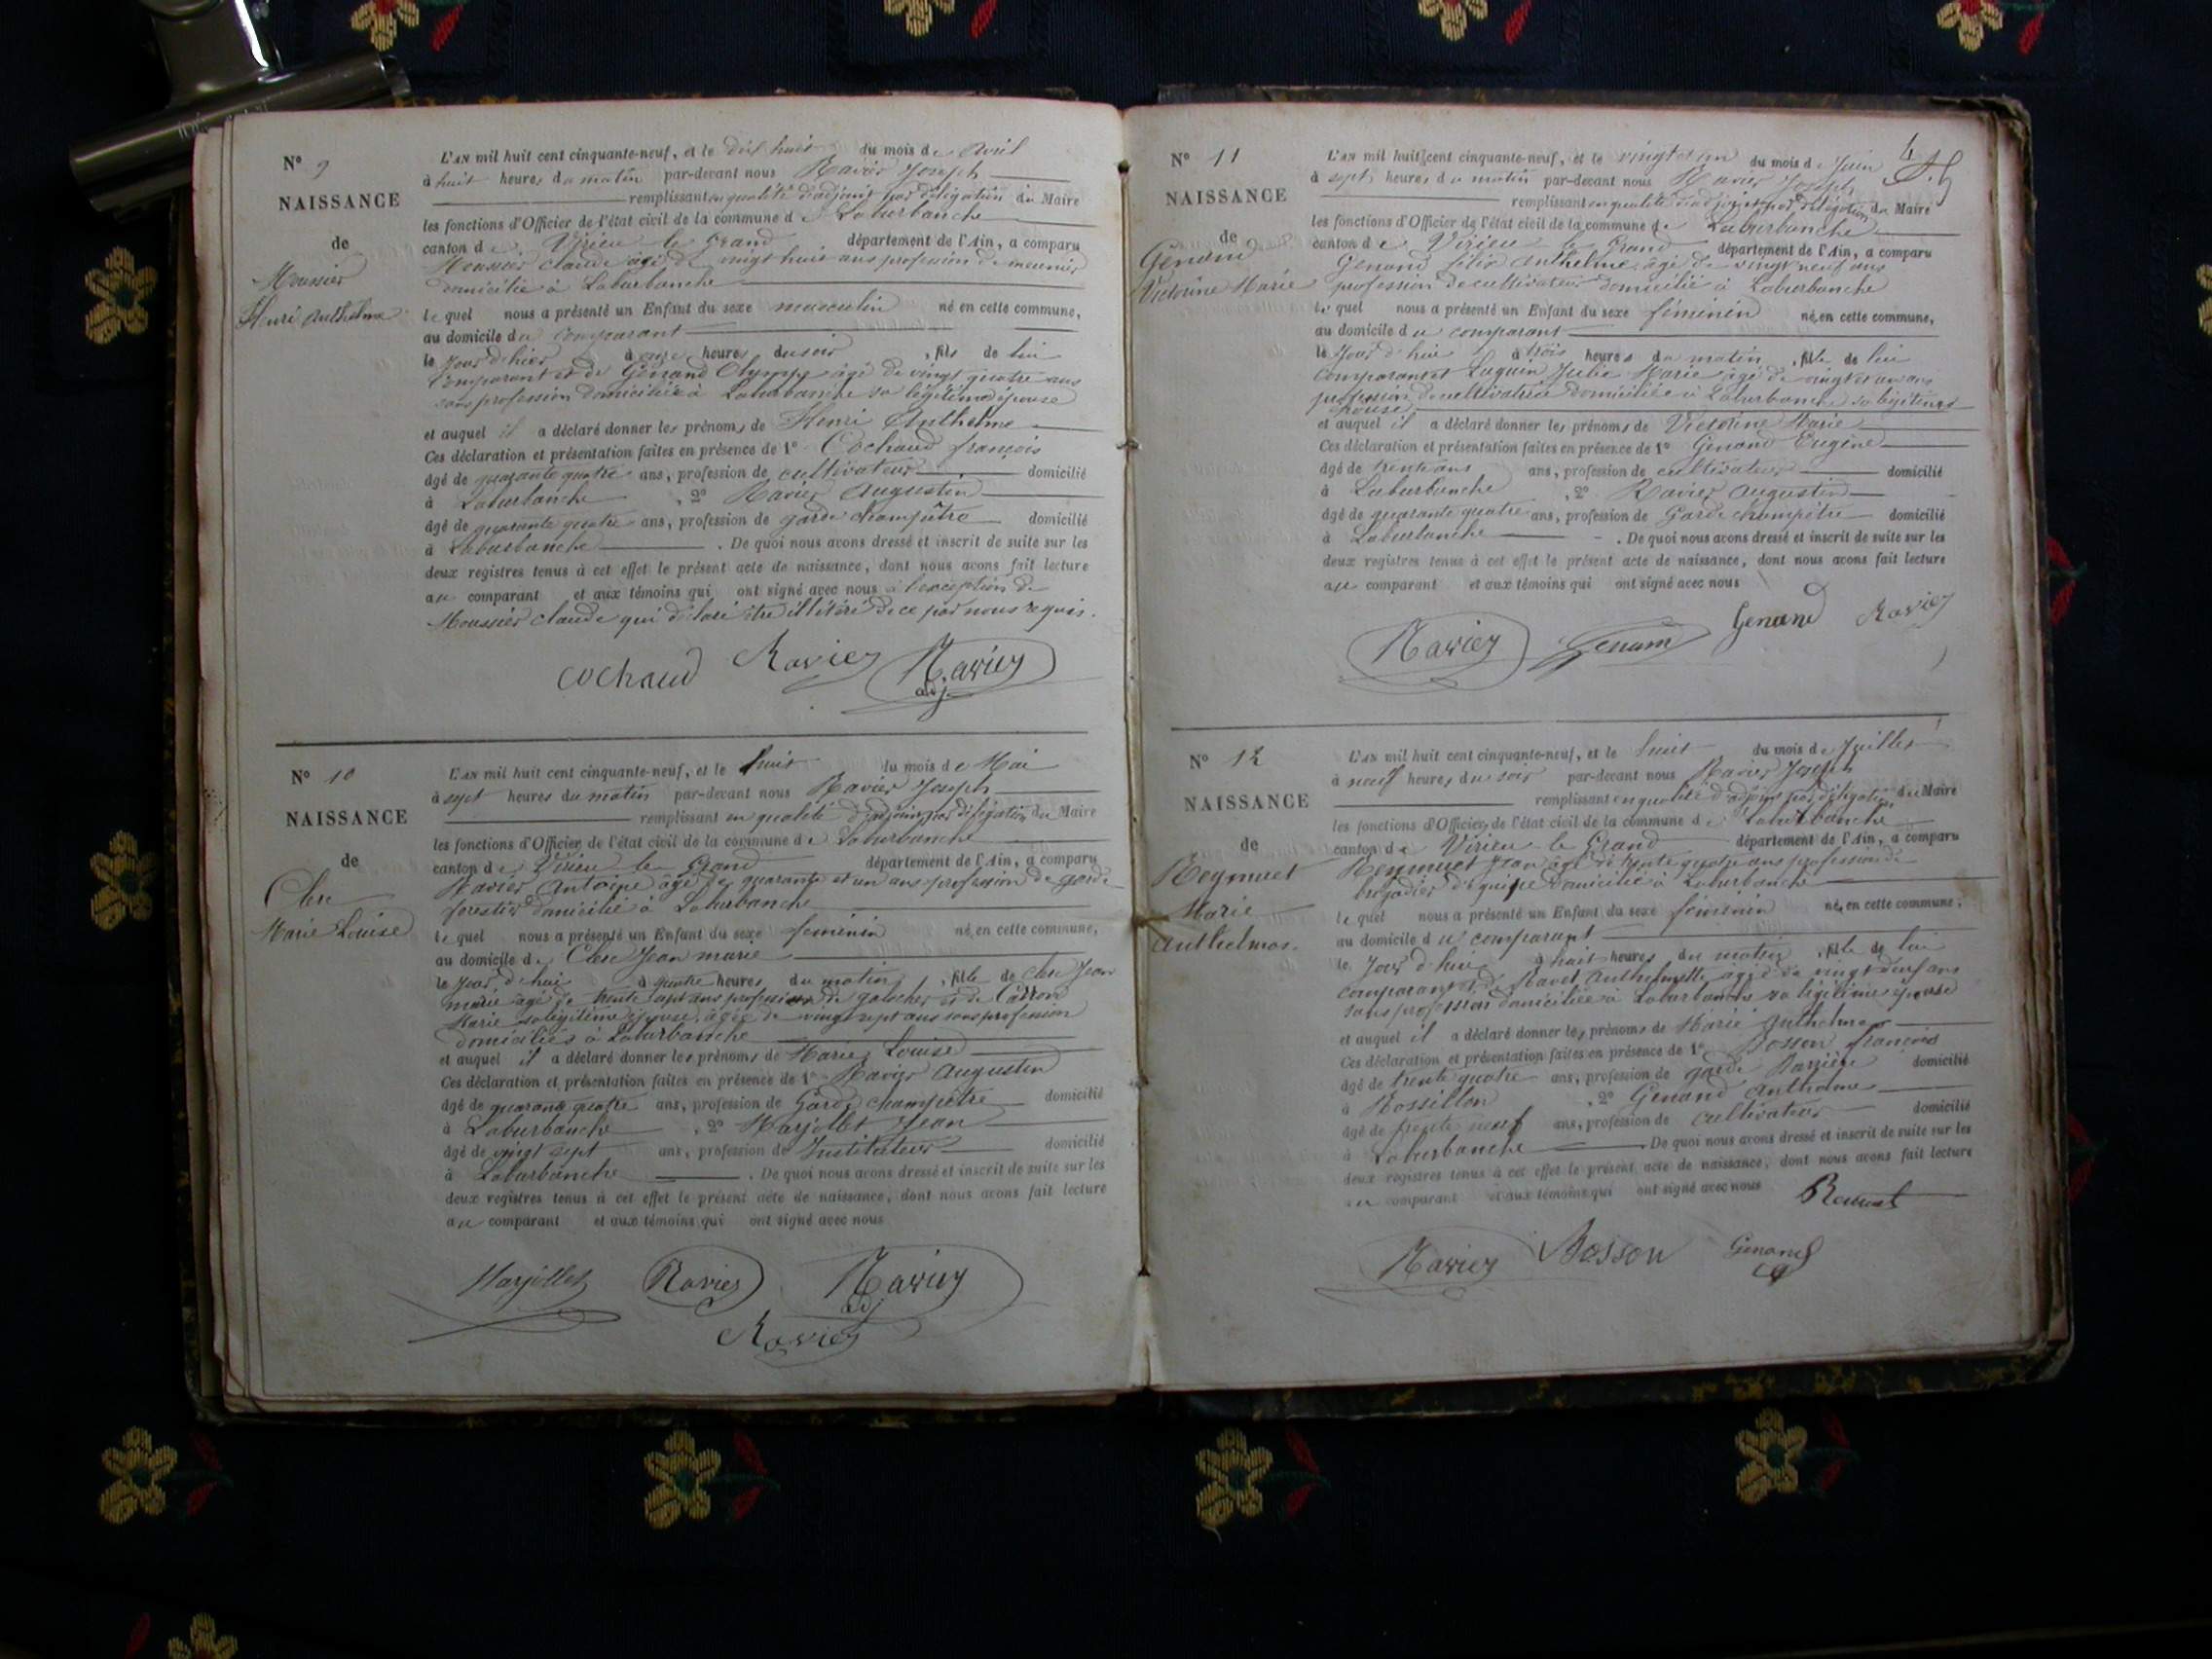 N° 9
NAISSANCE
de
Moussier
Henri Anthelme
L'AN mil huit cent cinquante-neuf, et le dix huit du mois de Avril
à huit heures du matin par-devant nous Ravier Joseph
remplissant en qualité d'adjoint par délégation du Maire
les fonctions d'Officier de l'état civil de la commune de Laburbanche
canton de Virieu le Grand département de l'Ain, a comparu
Moussier claude âgé de vingt huit ans profession de meunier
domicilié à Laburbanche
lequel nous a présenté un Enfant du sexe masculin né en cette commune,
au domicile du comparant
le jour d'hier à onze heures du soir, fils de lui
comparant et de Genand Olympe âgé de vingt quatre ans
sans profession domiciliée à Laburbanche sa légitime épouse
et auquel il a déclaré donner les prénoms de Henri Anthelme
Ces déclaration et présentation faites en présence de 1° Cochaud françois
âgé de quarante quatre ans, profession de cultivateur domicilié
à Laburbanche, 2° Ravier Augustin
âgé de quarante quatre ans, profession de garde champêtre domicilié
à Laburbanche. De quoi nous avons dressé et inscrit de suite sur les
deux registres tenus à cet effet le présent acte de naissance, dont nous avons fait lecture
au comparant et aux témoins qui ont signé avec nous à l'exception de
Moussier claude qui déclare être illitéré de ce par nous requis.
Cochaud Ravier Ravier
adj
N° 10
NAISSANCE
de
Clerc
Marie Louise
L'AN mil huit cent cinquante-neuf, et le huit du mois de Mai
à sept heures du matin par-devant nous Ravier Joseph
remplissant en qualité d'adjoint par délégation du Maire
les fonctions d'Officier de l'état civil de la commune de Laburbanche
canton de Virieu le Grand département de l'Ain, a comparu
Ravier Antoine âgé de quarante et un ans profession de garde
forestier domicilié à Laburbanche
lequel nous a présenté un Enfant du sexe féminin né, en cette commune,
au domicile de Clerc Jean marie
le jour d'hui à quatre heures du matin, fille de clerc Jean
marie âgé de trente sept ans profession de galocher et de Carron
Marie sa légitime épouse, âgée de vingt sept ans sans profession
domiciliés à Laburbanche
et auquel il a déclaré donner les prénoms de Marie Louise
Ces déclaration et présentation faites en présence de 1° Ravier Augustin
âgé de quarante quatre ans, profession de Garde champêtre domicilié
à Laburbanche, 2° Marjollet Jean
âgé de vingt sept ans, profession de Instituteur domicilié
à Laburbanche. De quoi nous avons dressé et inscrit de suite sur les
deux registres tenus à cet effet le présent acte de naissance, dont nous avons fait lecture
au comparant et aux témoins qui ont signé avec nous
Marjollet Ravier Ravier
adj
Ravier
4
N° 11
NAISSANCE
de
Genand
Victorine Marie
L'AN mil huit cent cinquante-neuf, et le vingt et un du mois de Juin
à sept heures du matin par-devant nous Ravier Joseph
remplissant en qualité d'adjoint par délégation du Maire
les fonctions d'Officier de l'état civil de la commune de Laburbanche
canton de Virieu le Grand département de l'Ain, a comparu
Genand félix Anthelme âgé de vingt neuf ans
profession de cultivateur domicilié à Laburbanche
lequel nous a présenté un Enfant du sexe féminin né, en cette commune,
au domicile du comparant
le jour d'hui à trois heures du matin, fille de lui
comparant et Luquin Julie Marie âgé de vingt et un ans
profession de cultivatrice domiciliée à Laburbanche sa légitime
épouse
et auquel il a déclaré donner les prénoms de Victorine Marie
Ces déclaration et présentation faites en présence de 1° Genand Eugène
âgé de trente ans ans, profession de cultivateur domicilié
à Laburbanche, 2° Ravier Augustin
âgé de quarante quatre ans, profession de Garde champêtre domicilié
à Laburbanche. De quoi nous avons dressé et inscrit de suite sur les
deux registres tenus à cet effet le présent acte de naissance, dont nous avons fait lecture
au comparant et aux témoins qui ont signé avec nous
Ravier Genand Genand Ravier
N° 12
NAISSANCE
de
Reymuet
Marie
Anthelmos.
L'AN mil huit cent cinquante-neuf, et le huit du mois de Juillet
à neuf heures du soir par-devant nous Ravier Joseph
remplissant en qualité d'adjoint par délégation du Maire
les fonctions d'Officier de l'état civil de la commune de Laburbanche
canton de Virieu le Grand département de l'Ain, a comparu
Reymuet Jean âgé de trente quatre ans profession de
brigadier d'équipe domicilié à Laburbanche
lequel nous a présenté un Enfant du sexe féminin né, en cette commune,
au domicile du comparant
le jour d'hui à huit heures du matin, fille de lui
comparant et de Ravet Anthelmette âgée de vingt neuf ans
sans profession domiciliée à Laburbanche sa légitime épouse
et auquel il a déclaré donner les prénoms de Marie Anthelmos
Ces déclaration et présentation faites en présence de 1° Bosson françois
âgé de trente quatre ans, profession de garde Barrière domicilié
à Rossillon, 2° Genand Anthelme
âgé de trente neuf ans, profession de cultivateur domicilié
à Laburbanche. De quoi nous avons dressé et inscrit de suite sur les
deux registres tenus à cet effet le présent acte de naissance, dont nous avons fait lecture
au comparant et aux témoins qui ont signé avec nous
Ravier Bosson Genand